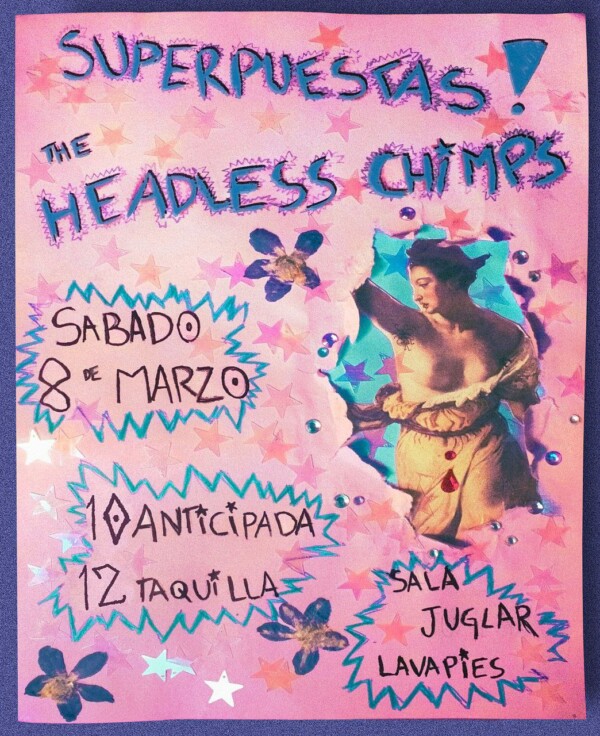 SUPERPUESTAS!
THE
HEADLESS CHIMPS
SABADO
8 DE MARZO
10 ANTICIPADA
12 TAQUILLA
SALA
JUGLAR
LAVAPIES